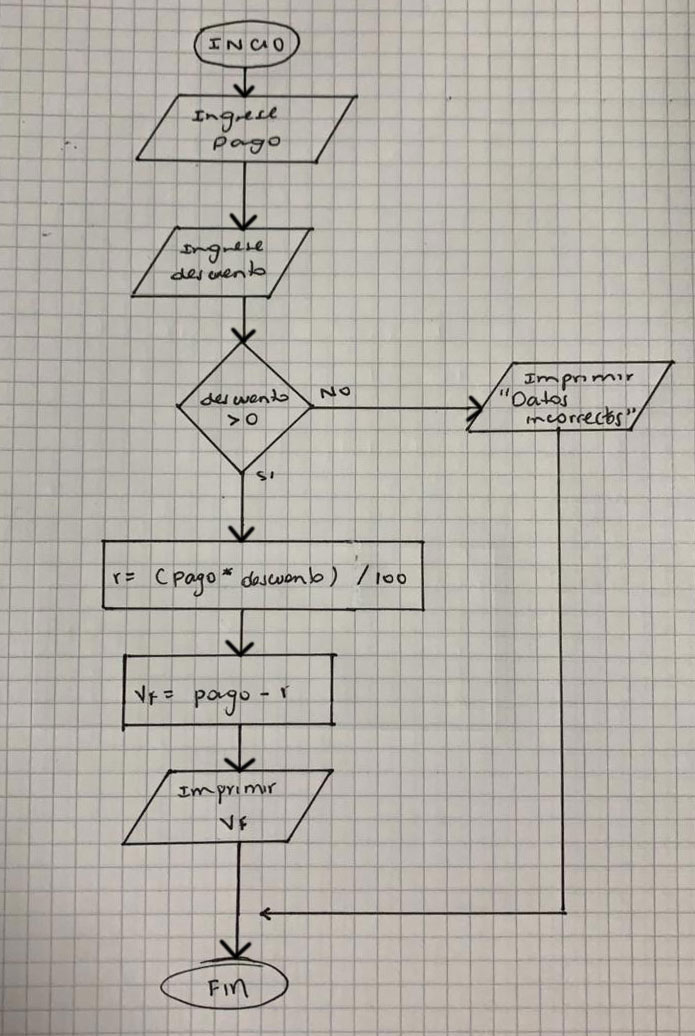 INCIO
Ingrese
pago
Ingrese
descuento
descuento
>0
NO
Imprimir
"Datos
incorrectos"
SI
r= (pago* descuento) /100
Vf= pago - r
Imprimir
Vf
FIN